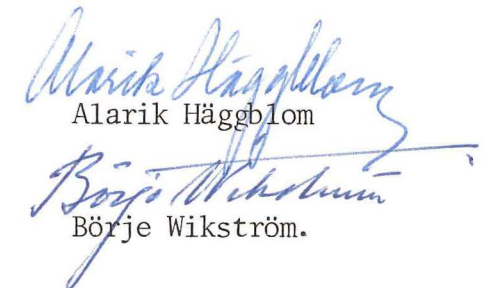 Alarik Häggblom
Alarik Häggblom
Börje Wikström
Börje Wikström.